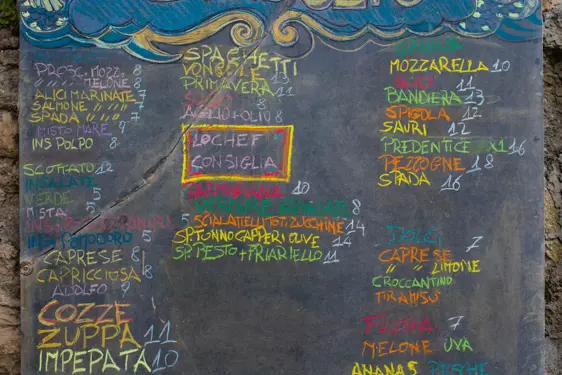 PROSC. MOZZ. 8
" " MELONE 8
ALICI MARINATE 7
SALMONE " " " 7
SPADA " " " 7
MISTO MARE 9
INS POLPO 8
SCOTTATO 12
INSALATE
VERDE 5
MISTA 5
INS. POMODORO 5
CAPRESE 8
CAPRICCIOSA 8
ADOLFO 9
COZZE
ZUPPA 11
IMPEPATA 10
SPAGHETTI
VONGOLE 13
PRIMAVERA 11
8
AGLIO + OLIO 8
LO CHEF
CONSIGLIA
10
8
SCIALATIELLI TOT. ZUCCHINE 14
SP. TONNO CAPPERI OLIVE 14
SP. PESTO + FRIARIELLO 11
MOZZARELLA 10
11
BANDIERA 13
SPIGOLA 12
SAURI 12
PREDENTICE X1 16
PEZZOGNE 18
SPADA 16
DOLCI 7
CAPRESE
" " LIMONE
CROCCANTINO
TIRAMISÙ
FRUTTA 7
MELONE UVA
ANANAS PESCHE